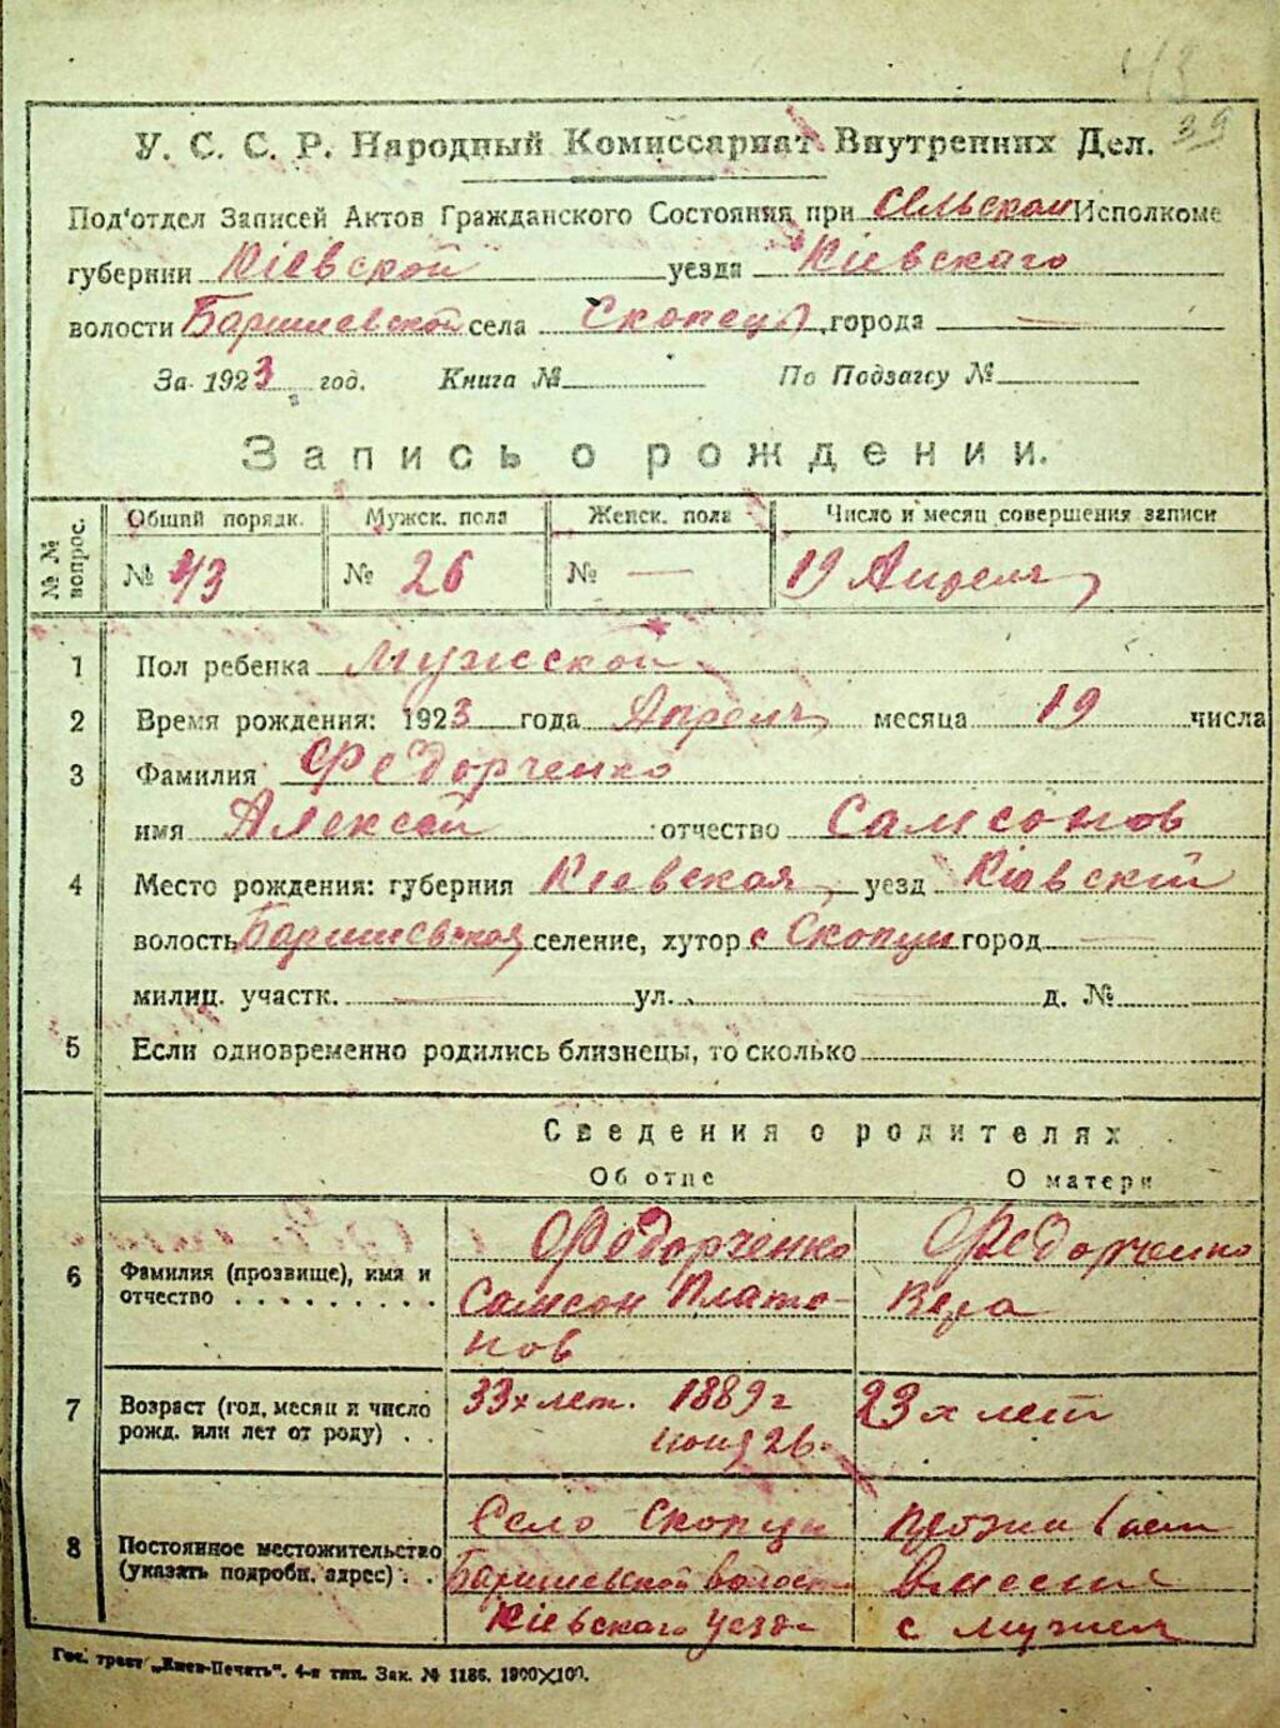 43
39
У. С. С. Р. Народный Комиссариат Внутренних Дел.
Под'отдел Записей Актов Гражданского Состояния при сельском Исполкоме
губернии Кіевской уезда Кіевскаго
волости Баришевской села Скопец города —
За 1923 год. Книга № По Подзагсу №
Запись о рождении.
№ № вопрос. Общий порядк. Мужск. пола Женск. пола Число и месяц совершения записи
№ 43 № 26 № — 19 Апреля
1 Пол ребенка мужской
2 Время рождения: 1923 года Апреля месяца 19 числа
3 Фамилия Федорченко
имя Алексей отчество Самсонов
4 Место рождения: губерния Кіевская уезд Кіевскій
волость Баришевская селение, хутор с Скопци город —
милиц. участк. — ул. — д. №
5 Если одновременно родились близнецы, то сколько
Сведения о родителях
Об отце О матери
6 Фамилия (прозвище), имя и отчество
Федорченко Самсон Платонов
Федорченко Вера
7 Возраст (год, месяц и число рожд. или лет от роду)
33х лет. 1889 г
июня 26.
23х лет
8 Постоянное местожительство (указать подробн. адрес)
Село Скопци
Баришевской волости
Кіевскаго уезда
проживает
вместе
с мужем
Гос. трест „Киев-Печать". 4-я тип. Зак. № 1186. 1900×100.